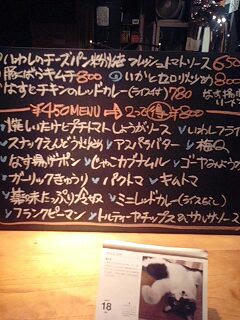 いわしのチーズパン粉焼 フレッシュトマトソース 650
豚ばらキムチ 800 いかとセロリ炒め 800
なすとチキンのレッドカレー(ライス付) 780 なす揚げ
¥450 MENU → 2つで 得 ¥800
焼しいたけとプチトマト しょうがソース いわしフライ
スナックえんどう アスパラバター 梅Q
なす揚げポン じゃこカプナムル ゴーヤ
ガーリックきゅうり パクトマ キムトマ
薬味たっぷり冷奴 ミニレッドカレー(ライスなし)
フランクピーマン トルティーヤチップス&サルサソース
18